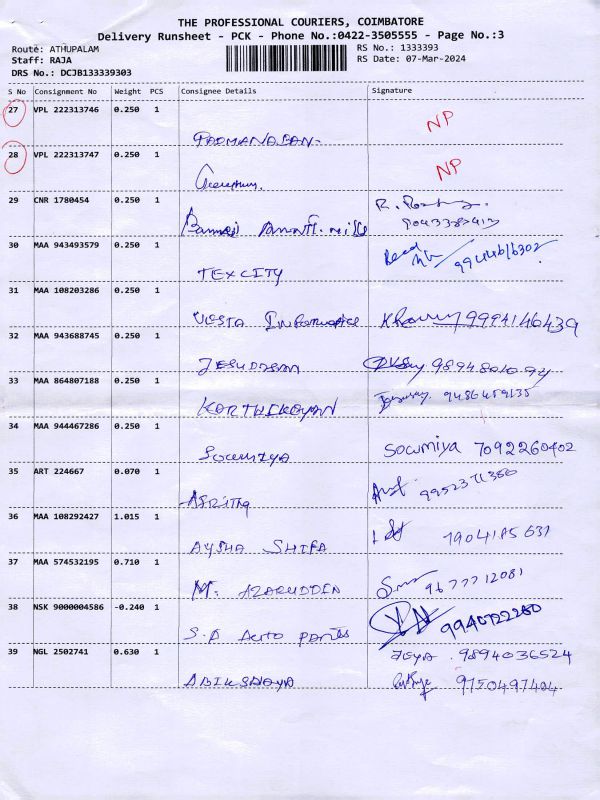 THE PROFESSIONAL COURIERS, COIMBATORE
Delivery Runsheet - PCK - Phone No.:0422-3505555 - Page No.:3
Route: ATHUPALAM
Staff: RAJA
DRS No.: DCJB133339303
RS No.: 1333393
RS Date: 07-Mar-2024
S No Consignment No Weight PCS Consignee Details Signature
27 VPL 222313746 0.250 1
PADMANABAN NP
28 VPL 222313747 0.250 1
NP
29 CNR 1780454 0.250 1
30 MAA 943493579 0.250 1
TEXCITY
31 MAA 108203286 0.250 1
VESTA 9994146439
32 MAA 943688745 0.250 1
JESUDASAN 9894801094
33 MAA 864807188 0.250 1
KARTHIKAYAN 9486459135
34 MAA 944467286 0.250 1
SOWMIYA Socumiya 7092260402
35 ART 224667 0.070 1
36 MAA 108292427 1.015 1
AYSHA SHIFA
37 MAA 574532195 0.710 1
M. AZARUDDEN 9677712081
38 NSK 9000004586 -0.240 1
S.A Auto partes
39 NGL 2502741 0.630 1
JEYA 9894036524
ABIKSHAYA 9750497404